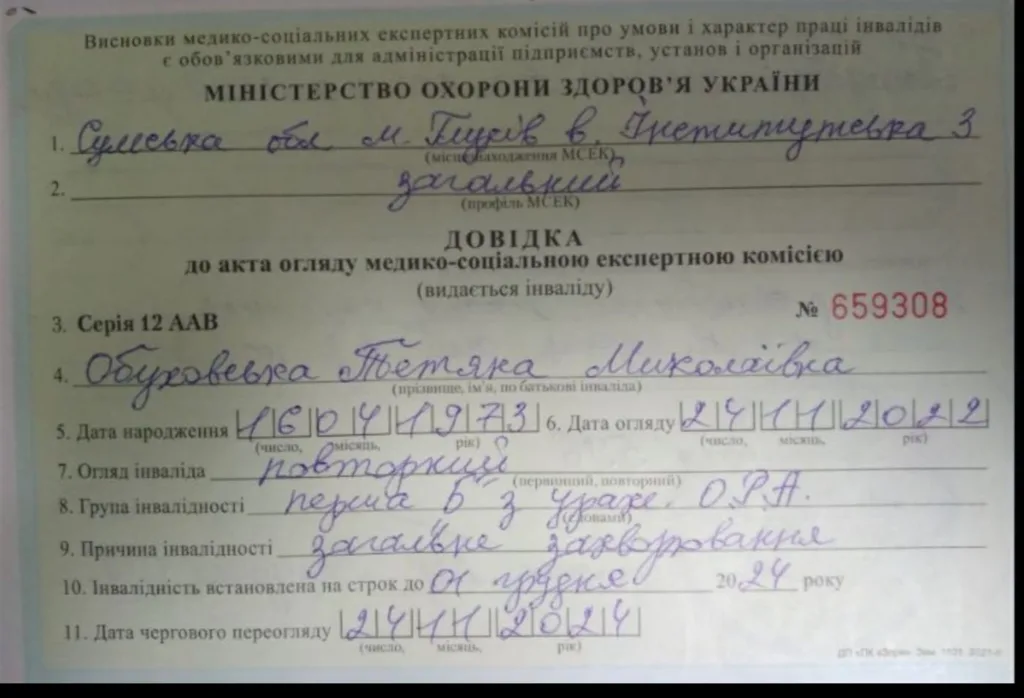 Висновки медико-соціальних експертних комісій про умови і характер праці інвалідів
є обов'язковими для адміністрації підприємств, установ і організацій
МІНІСТЕРСТВО ОХОРОНИ ЗДОРОВ'Я УКРАЇНИ
1. Сумська обл м. Глухів в. Інститутська 3
(місцезнаходження МСЕК)
2. загальний
(профіль МСЕК)
ДОВІДКА
до акта огляду медико-соціальною експертною комісією
(видається інваліду)
3. Серія 12 ААВ № 659308
4. Обуховська Тетяна Миколаївна
(прізвище, ім'я, по батькові інваліда)
5. Дата народження 16 04 1973 6. Дата огляду 24 11 2022
(число, місяць, рік) (число, місяць, рік)
7. Огляд інваліда повторний
(первинний, повторний)
8. Група інвалідності перша Б з урах. О.Р.А.
(словами)
9. Причина інвалідності загальне захворювання
10. Інвалідність встановлена на строк до 01 грудня 2024 року
11. Дата чергового переогляду 24 11 2024
(число, місяць, рік)